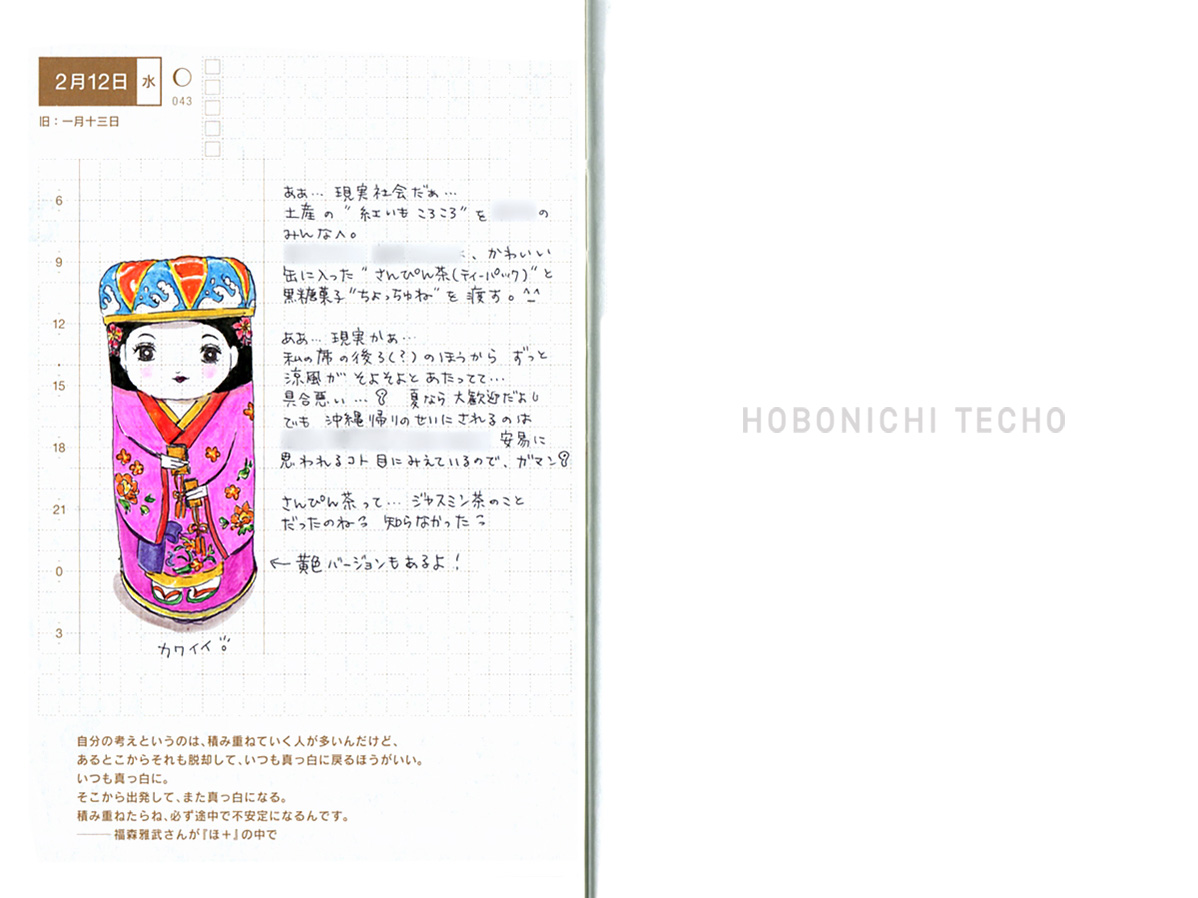 2月12日 水
043
旧：一月十三日
6
9
12
15
18
21
0
3
ああ… 現実社会だぁ…
土産の"紅いもころころ"を の
みんなへ。
、かわいい
缶に入った"さんぴん茶(ティーパック)"と
黒糖菓子"ちょっちゅね"を渡す。^^
ああ… 現実かぁ…
私の席の後ろ(?)のほうから ずっと
涼風が そよそよとあたってて…
具合悪い… 夏なら大歓迎だよ
でも 沖縄帰りのせいにされるのは
安易に
思われるコト目にみえているので、ガマン
さんぴん茶って… ジャスミン茶のこと
だったのね 知らなかった
← 黄色バージョンもあるよ！
カワイイ。
自分の考えというのは、積み重ねていく人が多いんだけど、
あるとこからそれも脱却して、いつも真っ白に戻るほうがいい。
いつも真っ白に。
そこから出発して、また真っ白になる。
積み重ねたらね、必ず途中で不安定になるんです。
───福森雅武さんが『ほ＋』の中で
HOBONICHI TECHO